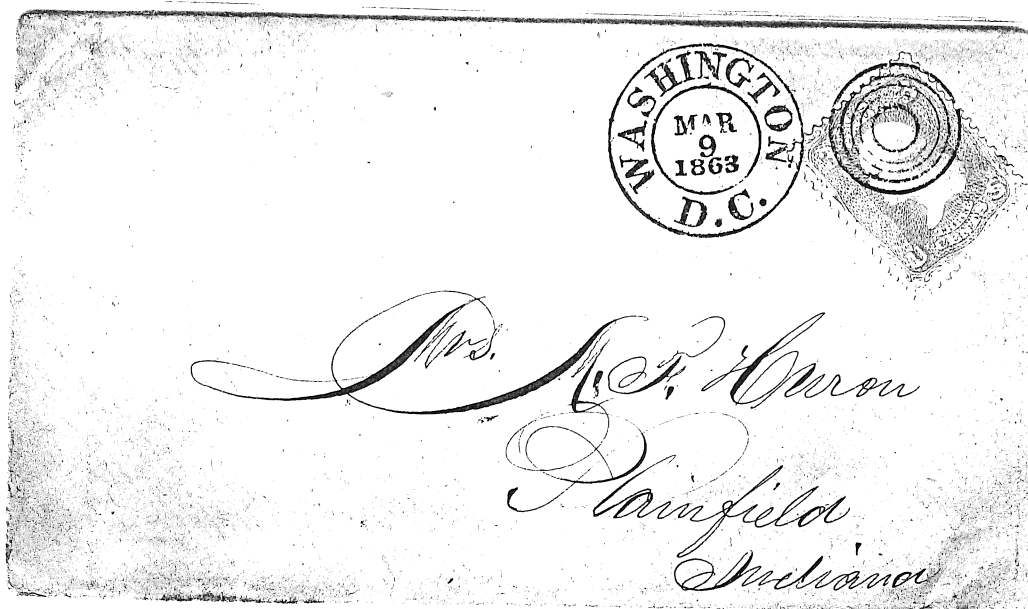 WASHINGTON
MAR
9
1863
D.C.
Mrs. M. F. Huron
Plainfield
Indiana